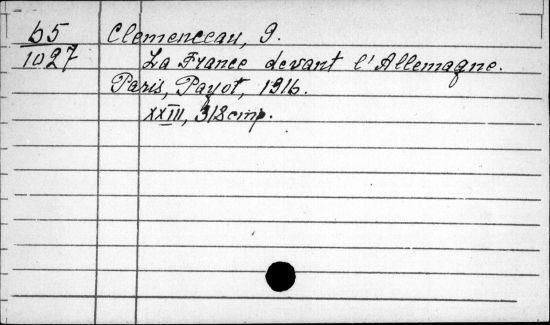 65
1027
Clemenceau, G.
La France devant l'Allemagne.
Paris, Payot, 1916.
XXIII, 318 стр.